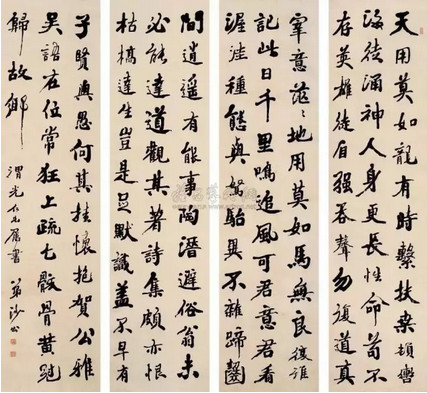 天用莫如龍有時繫扶桒頓轡
海徒涌神人身更長性命苟不
存英雄徒自强吞聲勿復道真
宰意茫〻地用莫如馬無良復誰
記此日千里鳴追風可君意君看
渥洼種態與駑駘異不雜蹄齧
間逍遥有能事陶潛避俗翁未
必能達道觀其著詩集頗亦恨
枯槁達生豈是足默識蓋不早有
子賢與愚何其挂懷抱賀公雅
吳語在位常狂上疏乞骸骨黄冠
歸故鄉
渭光仁兄屬書 弟沙公